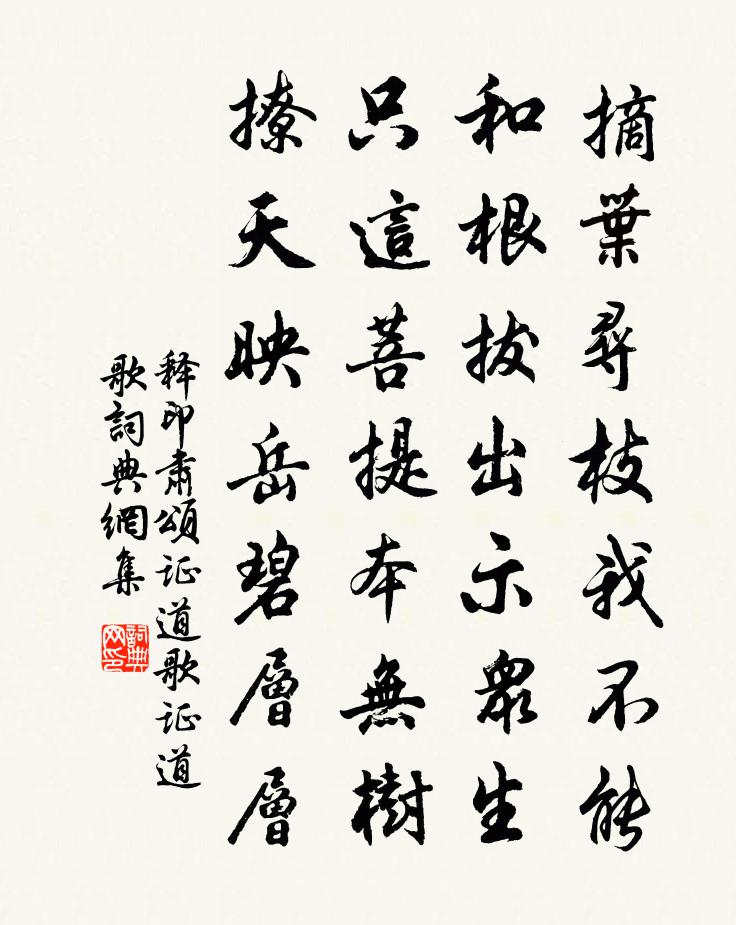 摘葉尋枝我不能
和根拔出示衆生
只這菩提本無樹
撩天映岳碧層層
释印肃頌证道歌证道
歌詞典網集
詞典网印